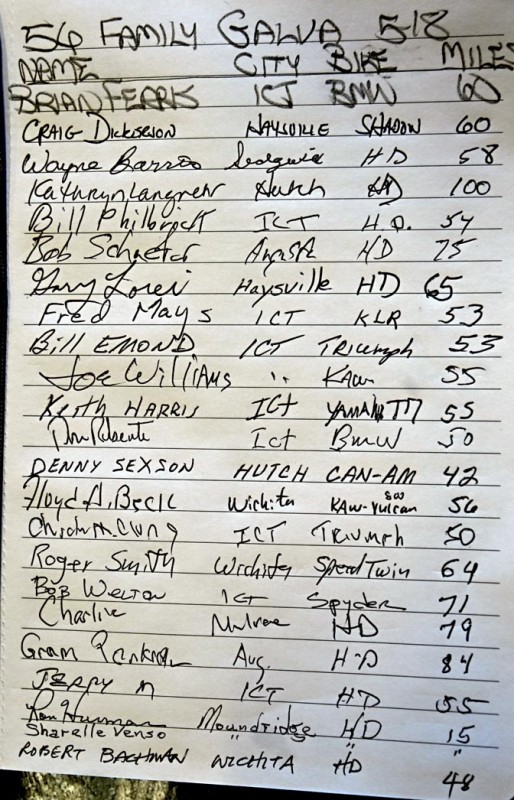 56 FAMILY GALVA 518
NAME CITY BIKE MILES
BRIAN FERRIS ICT BMW 60
CRAIG DICKERSON HAYSVILLE SHADOW 60
Wayne Sedgwick HD 58
Kathryn Langrehr Hutch HD 100
Bill Philbrick ICT H.D. 54
Bob Schaefer Augusta HD 75
Gary Haysville HD 65
Fred Mays ICT KLR 53
Bill EMOND ICT Triumph 53
Joe WilliAMs " KAW 55
Keith HARRIS ICt YAMAHA 55
Ict BMW 50
DENNY SEXSON HUTCH CAN-AM 42
Floyd A. Beck Wichita KAW-Vulcan 56
ICT TRIUMPH 50
Roger Smith Wichita Speed Twin 64
Bob Welton ICT Spyder 71
Charlie Mulvane HD 79
Aug. H-D 84
JERRY M ICT HD 55
Moundridge HD 15
Sharelle Venso " " "
ROBERT BACHMAN WICHITA HD 48